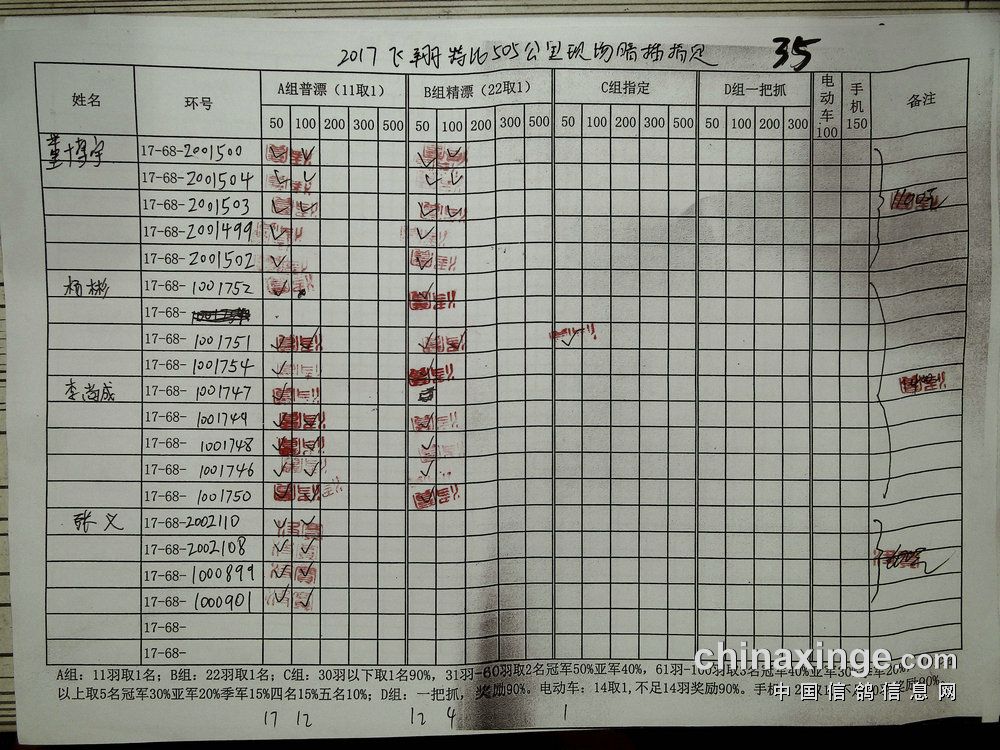 2017飞翔特比505公里现场暗插指定 35
姓名 环号 A组普漂（11取1） B组精漂（22取1） C组指定 D组一把抓 电动车100 手机150 备注
50 100 200 300 500 50 100 200 300 500 50 100 200 300 500 50 100 200 300
17-68-2001500 ✓ ✓ ✓ ✓
17-68-2001504 ✓ ✓ ✓ ✓
17-68-2001503 ✓ ✓ ✓ ✓
17-68-2001499 ✓ ✓
17-68-2001502 ✓ ✓
杨彬 17-68-1001752 ✓
17-68-
17-68-1001751 ✓ ✓ ✓ ✓ ✓
17-68-1001754 ✓ ✓
李尚成 17-68-1001747 ✓
17-68-1001749 ✓ ✓ ✓
17-68-1001748 ✓ ✓ ✓
17-68-1001746 ✓ ✓ ✓
17-68-1001750 ✓ ✓ ✓
张义 17-68-2002110 ✓ ✓
17-68-2002108 ✓ ✓
17-68-1000899 ✓ ✓
17-68-1000901 ✓ ✓
17-68-
17-68-
A组：11羽取1名；B组：22羽取1名；C组：30羽以下取1名90%，31羽-60羽取2名冠军50%亚军40%，61羽-100羽取3名冠军40%亚军30%季军20%
以上取5名冠军30%亚军20%季军15%四名15%五名10%；D组：一把抓，奖励90%。电动车：14取1,不足14羽奖励90%。手机：
17 12 12 4 1
chinaxinge.com
中国信鸽信息网